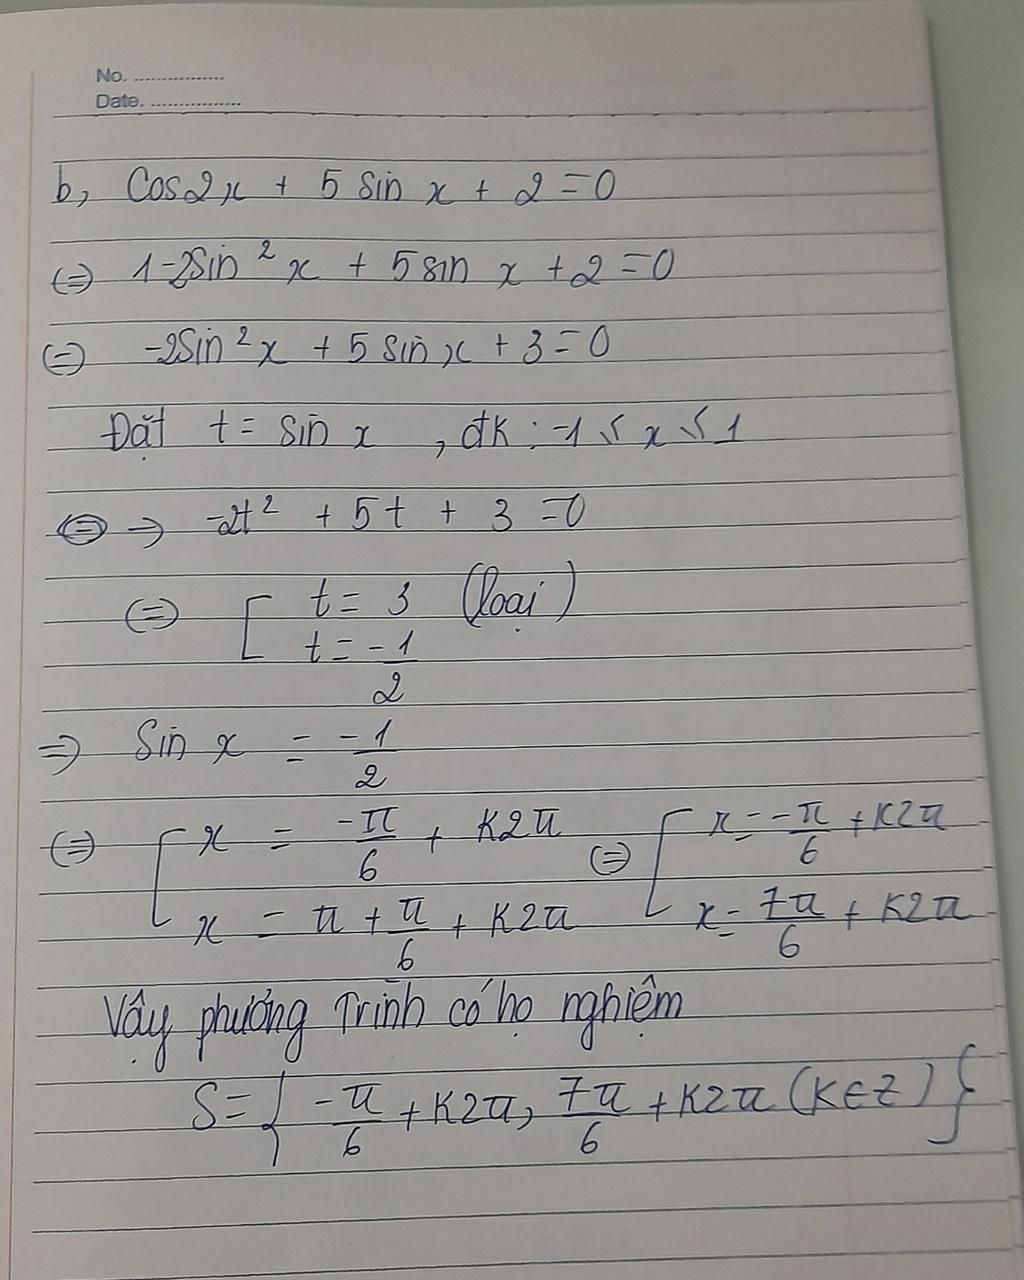 No. ................
Date. ................
b, Cos2x + 5 sin x + 2 = 0
(=) 1-2sin²x + 5 sin x + 2 = 0
(=) -2sin²x + 5 sin x + 3 = 0
Đặt t = sin x , đk : -1 ≤ x ≤ 1
→ -2t² + 5t + 3 = 0
(=) [ t = 3 (loại)
t = -1/2
=> Sin x = -1/2
(=) [ x = -π/6 + K2π (=) [ x = -π/6 + K2π
x = π + π/6 + K2π x = 7π/6 + K2π
Vậy phương Trình có họ nghiệm
S = { -π/6 + K2π, 7π/6 + K2π (K∈Z) }